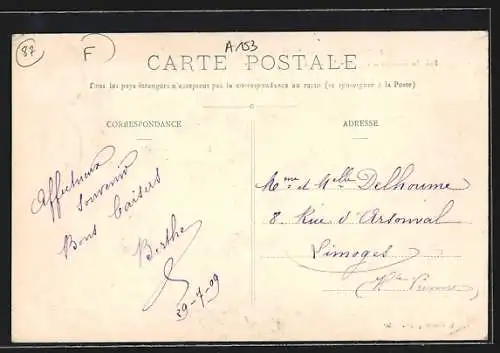 87
F
A153
CARTE POSTALE
Tous les pays étrangers n'acceptent pas la correspondance au recto (se renseigner à la Poste)
CORRESPONDANCE
ADRESSE
Affectueux
souvenir
Bons baisers
Berthe
29-7-09
Mme et Melle Delhoume
8. Rue d'Arsonval
Limoges
(Hte Vienne)